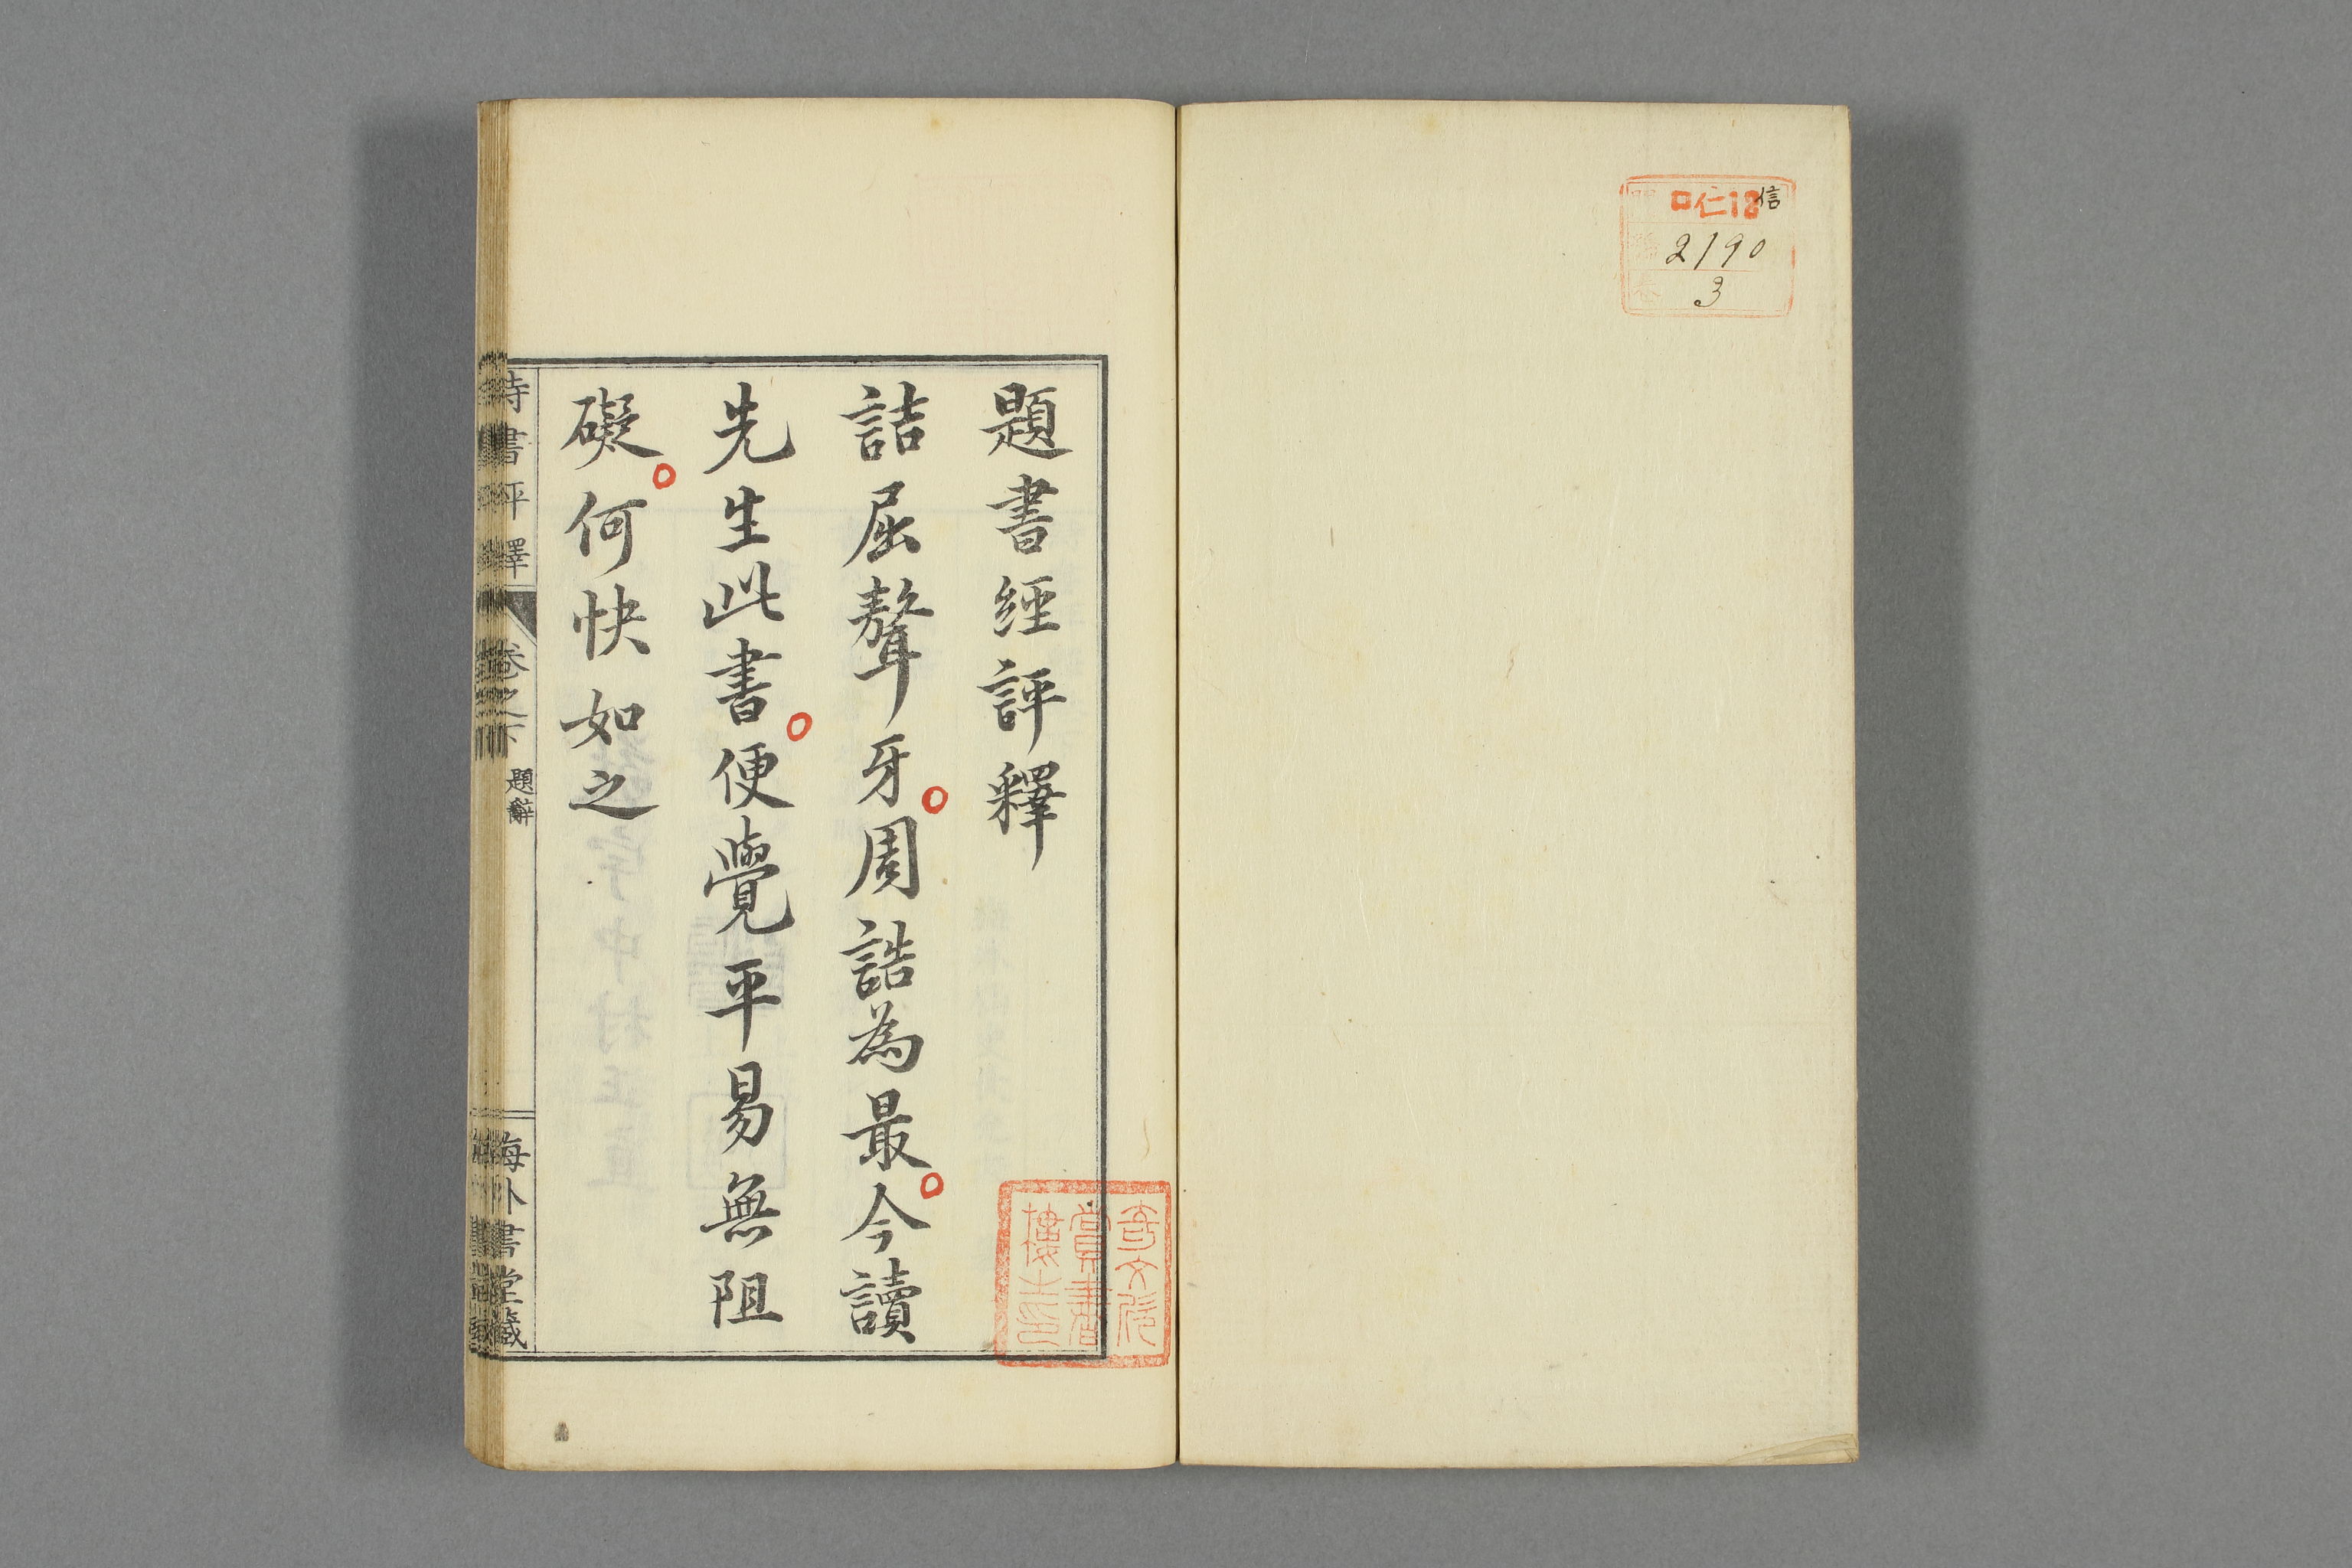 ロ仁12信
2190
3
題書經評釋
詰屈聱牙周誥為最今讀
先生此書便覺平易無阻
礙何快如之
詩書評釋
卷之下
題辭
海外書堂藏